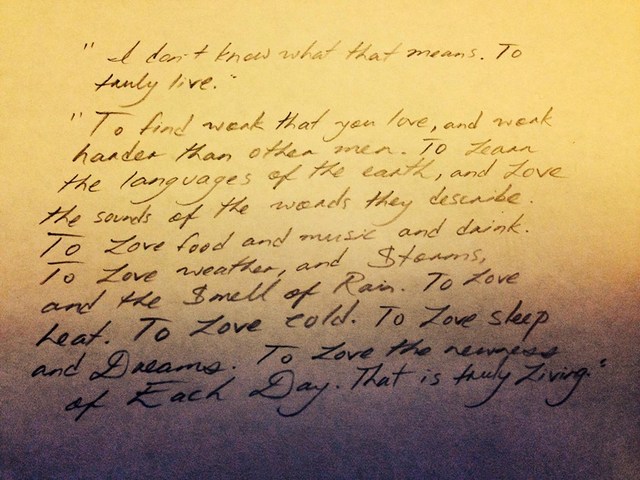 " I don't know what that means. To
truly live."
" To find work that you love, and work
harder than other men. To Learn
the languages of the earth, and Love
the sounds of the words they describe.
To Love food and music and drink.
To Love weather, and Storms,
and the Smell of Rain. To Love
heat. To Love cold. To Love sleep
and Dreams. To Love the newness
of Each Day. That is truly Living."